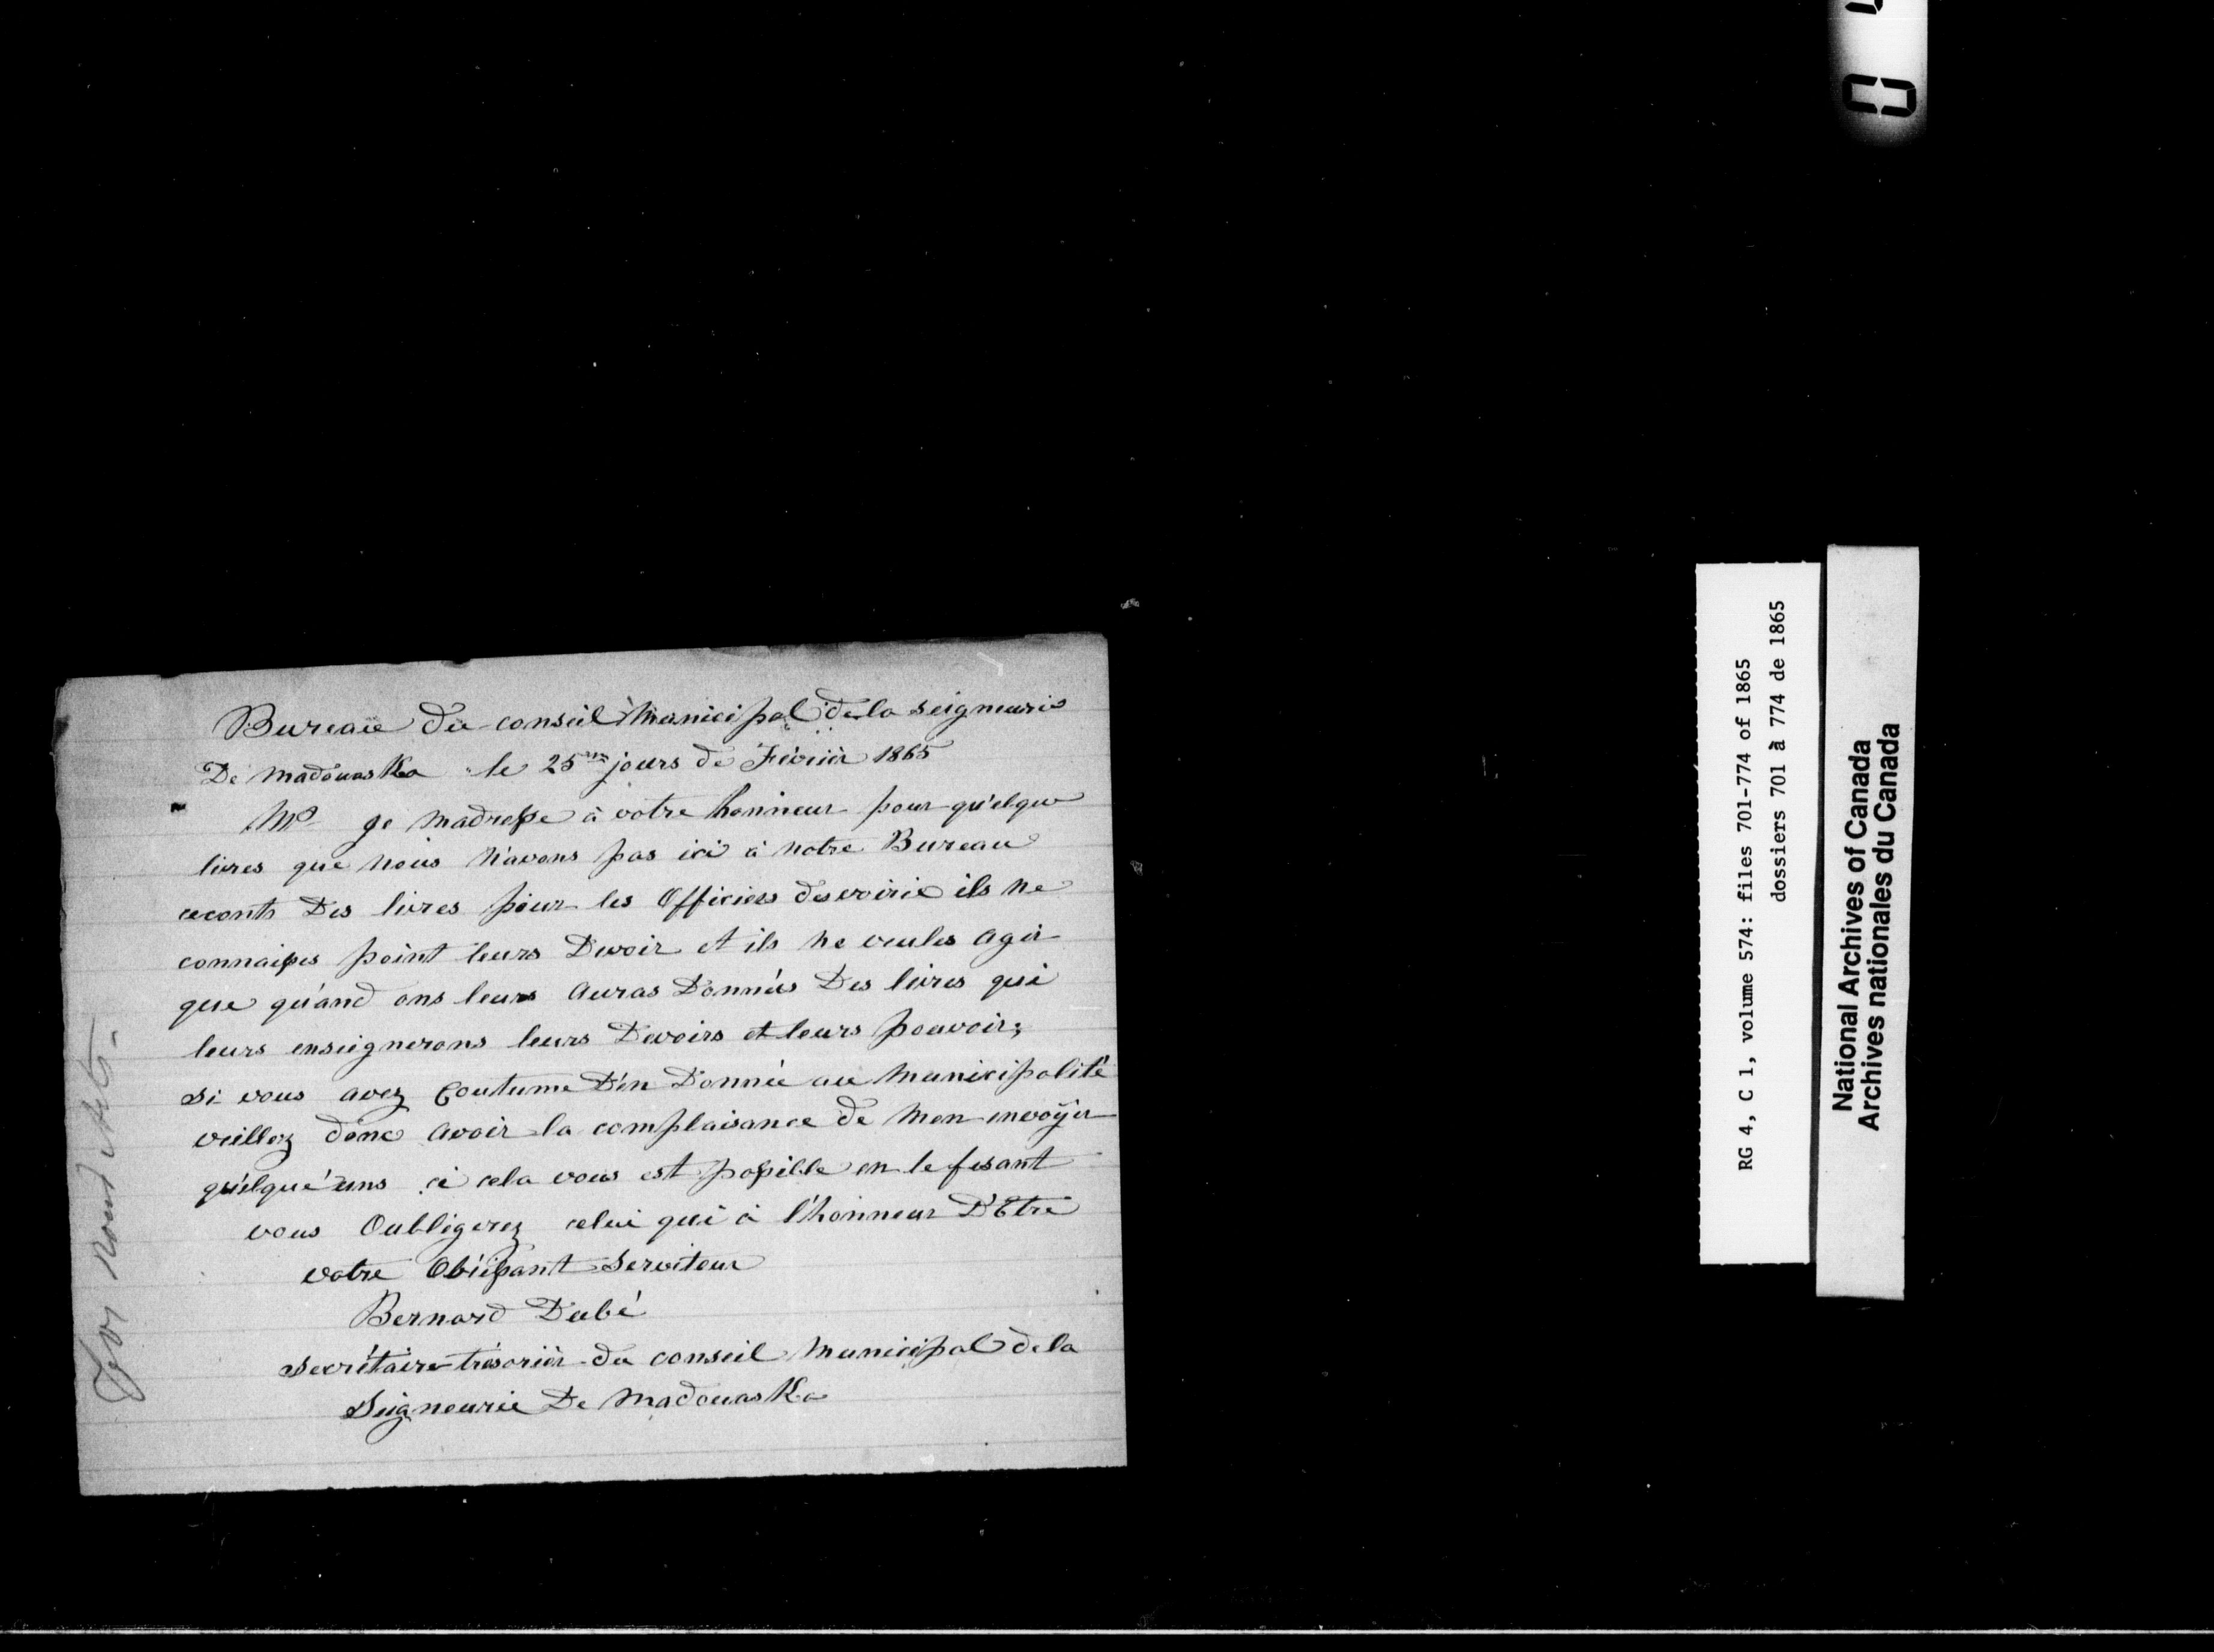 Bureau du conseil Municipal de la seigneurie
De Madouaska le 25me jours de Février 1865
Mr je madresse à votre honneur pour qu'elque
livres que nous n'avons pas ici à notre Bureau
ceconts Des livres pour les Officiers des voirie ils ne
connaisses point leurs Devoir et ils ne veules agir
que qu'and ons leurs auras Donnés Des livres qui
leurs enseignerons leurs Devoirs et leurs pouvoir;
si vous avez Coutume D'en Donnée au municipalité
veillez donc avoir la complaisance de men envoÿer
qu'elqué'uns ci cela vous est possible en le fesant
vous Oubligerez celui qui à l'honneur D'Etre
votre Obéissant Serviteur
Bernard Dubé
Secrétaire trésorièr du conseil Municipal de la
Seigneurie De Madouaska
For Road Acts-
RG 4, C 1, volume 574: files 701-774 of 1865
dossiers 701 à 774 de 1865
National Archives of Canada
Archives nationales du Canada